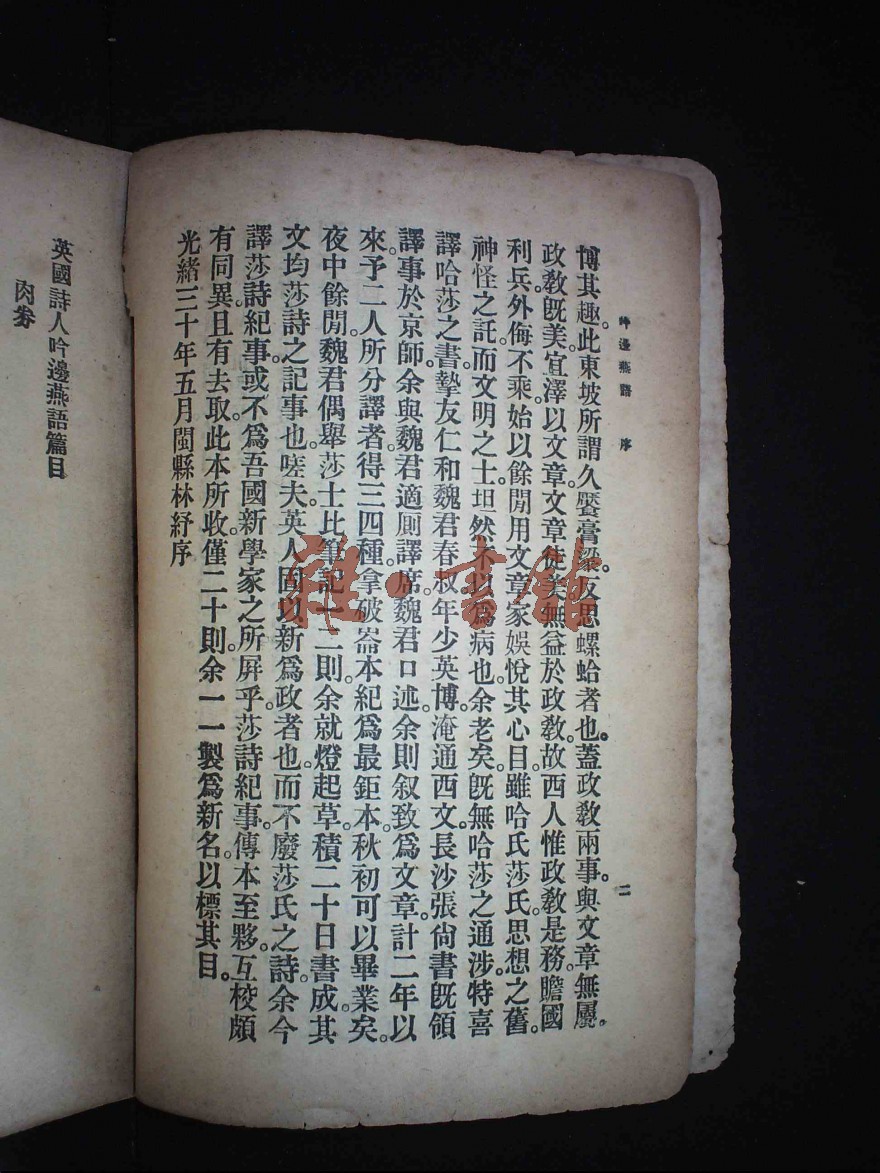 吟邊燕語 序 二
博其趣。此東坡所謂久饜膏粱。反思螺蛤者也。蓋政教兩事。與文章無屬。
政教既美。宜澤以文章。文章徒美。無益於政教。故西人惟政教是務。贍國
利兵。外侮不乘。始以餘閒用文章家娛悅其心目。雖哈氏莎氏。思想之舊。
神怪之託。而文明之士。坦然不以爲病也。余老矣。既無哈莎之通涉。特喜
譯哈莎之書。摯友仁和魏君春叔。年少英博。淹通西文。長沙張尚書既領
譯事於京師。余與魏君適厠譯席。魏君口述。余則叙致爲文章。計二年以
來。予二人所分譯者得三四種。拿破崙本紀爲最鉅本。秋初可以畢業矣。
夜中餘閒。魏君偶舉莎士比筆記一二則。余就燈起草。積二十日書成。其
文均莎詩之記事也。嗟夫。英人固以新爲政者也。而不廢莎氏之詩。余今
譯莎詩紀事。或不爲吾國新學家之所屏乎。莎詩紀事。傳本至夥。互校頗
有同異。且有去取。此本所收僅二十則。余一一製爲新名。以標其目。
光緒三十年五月閩縣林紓序
英國詩人吟邊燕語篇目
肉券
雅·書館